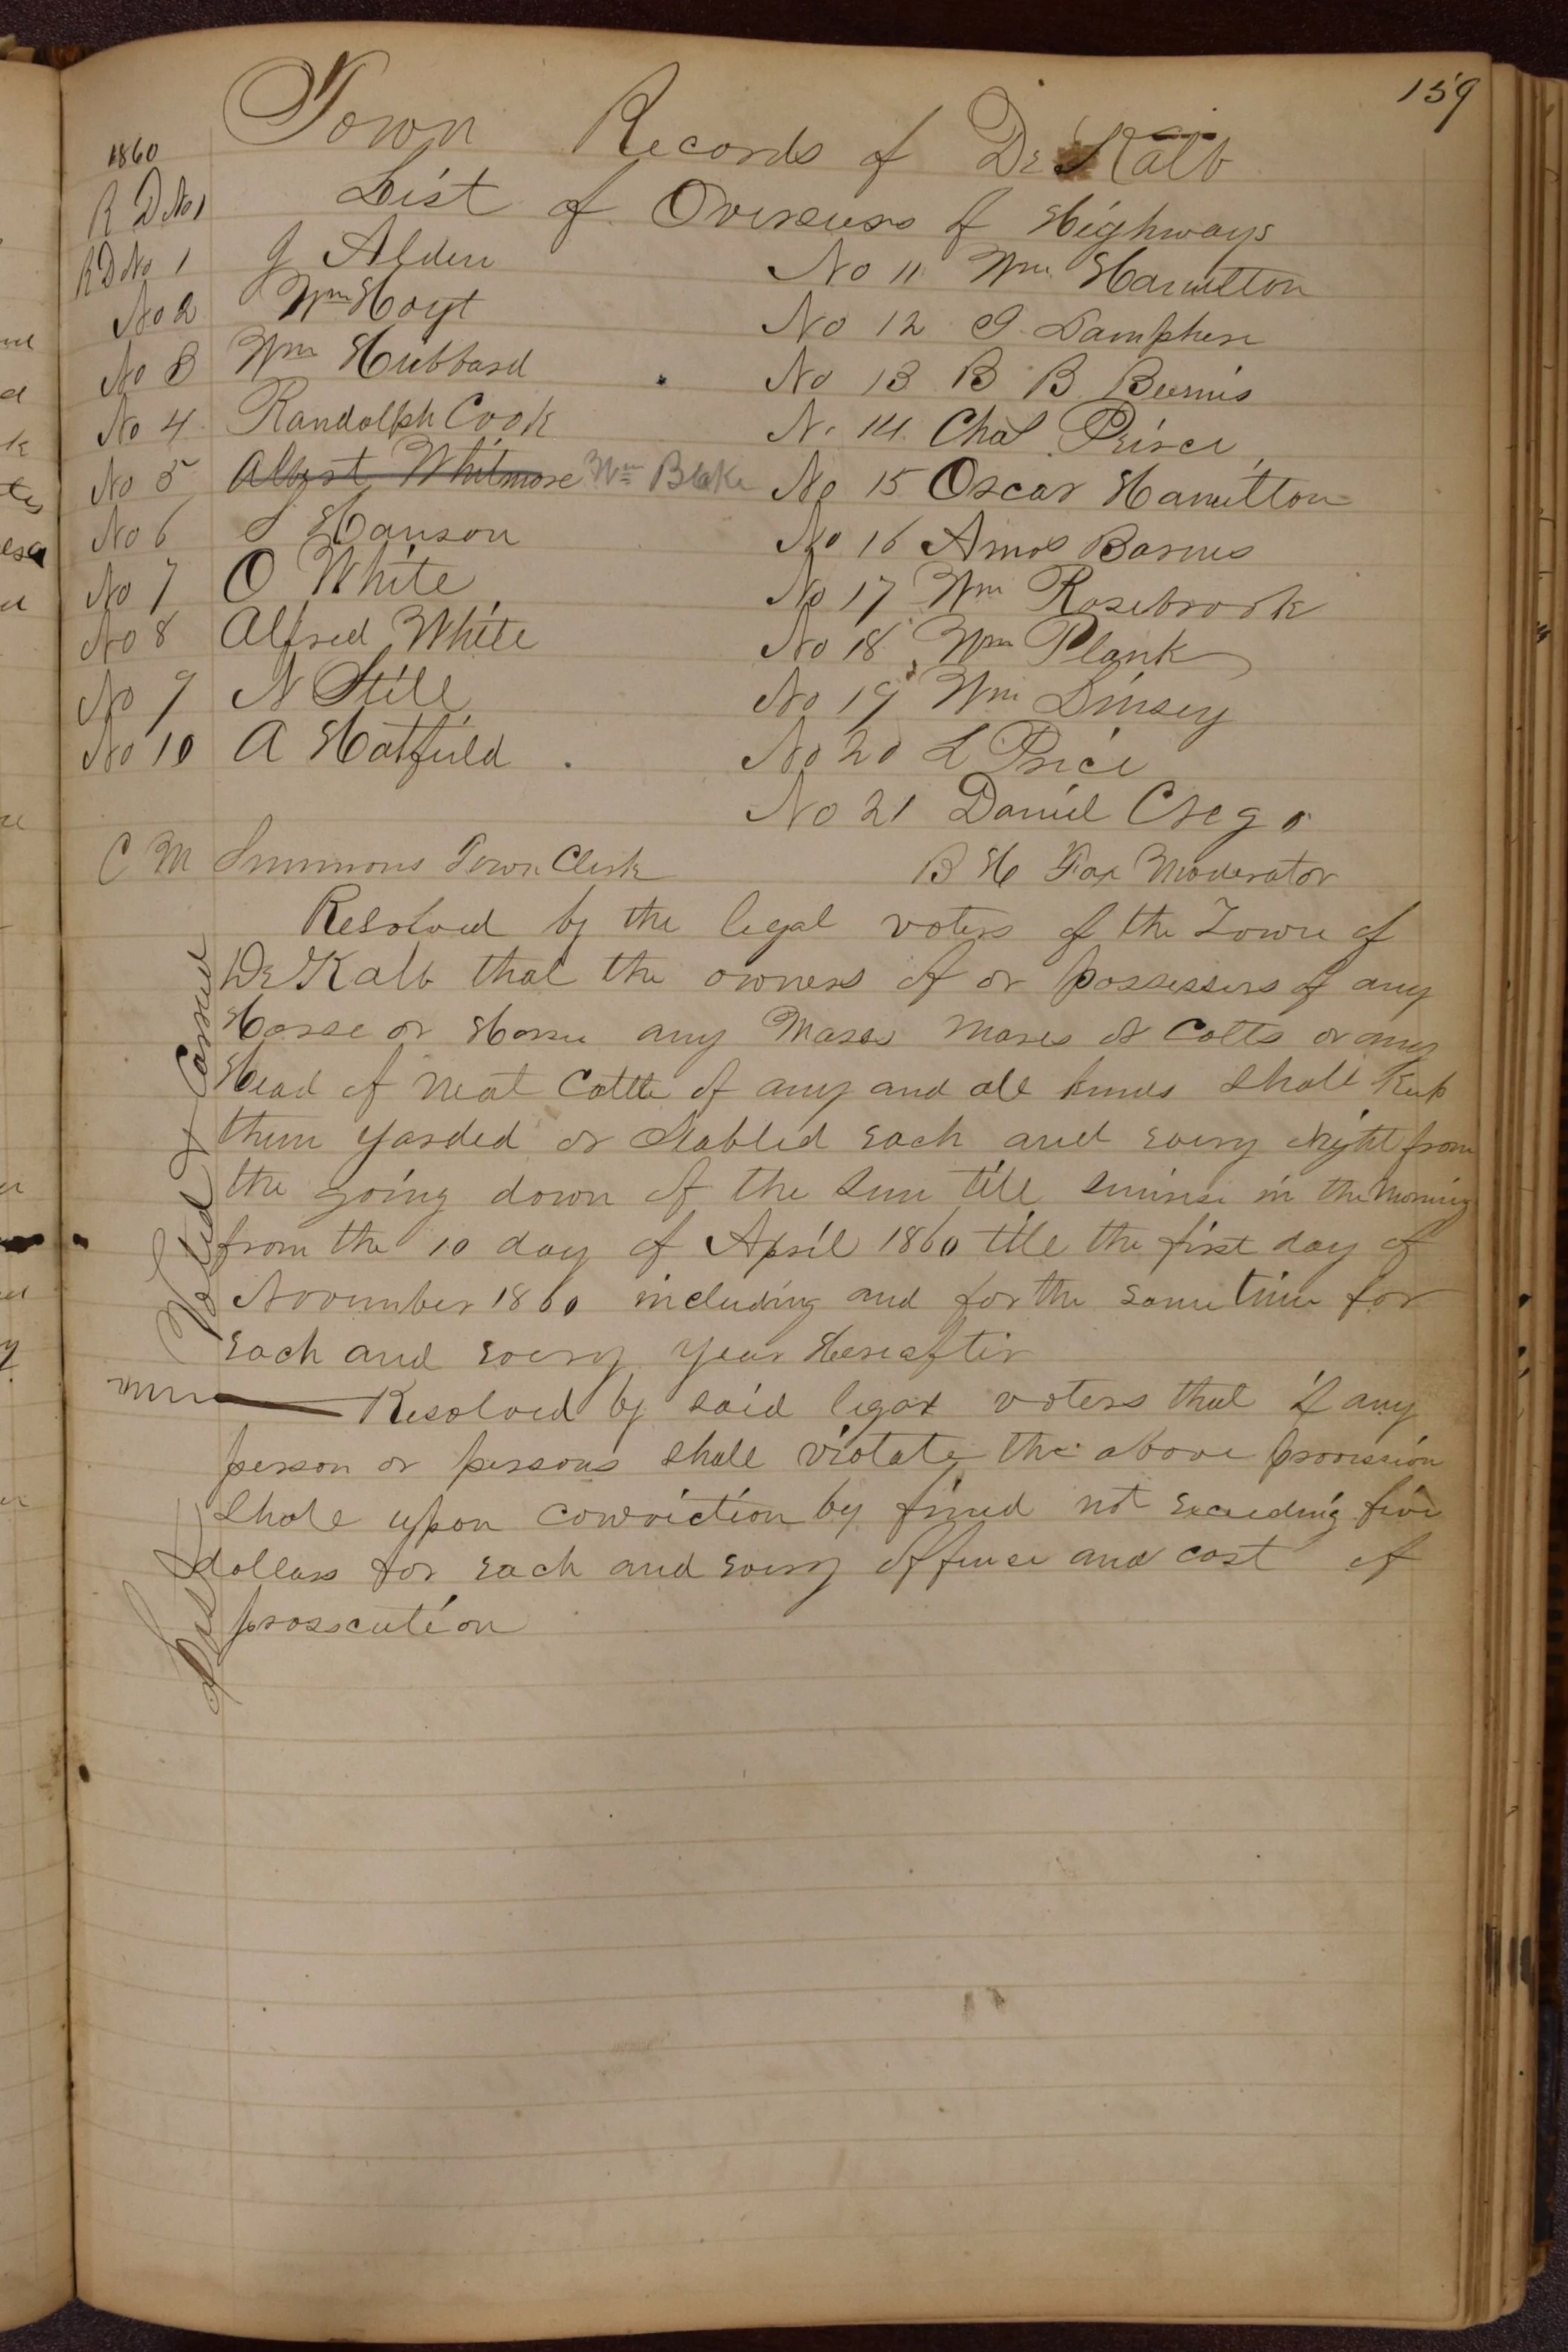 159
Town Records of De Kalb
1860
R D No 1 List of Overseers of Highways
R D No 1 J Alden
No 2 Wm Hoyt
No 3 Wm Hubbard
No 4 Randolph Cook
No 5 Albert Whitmore Wm Blake
No 6 S Hanson
No 7 O White
No 8 Alfred White
No 9 N Still
No 10 A Hatfield
No 11 Wm Hamilton
No 12 Lamphere
No 13 B B Bemis
N. 14 Chas Peirce
No 15 Oscar Hamilton
No 16 Amos Barnes
No 17 Wm Rosebrook
No 18 Wm Plank
No 19 Wm Linsey
No 20 L Price
No 21 Daniel Crego
C M Simmons Town Clerk B H Fox Moderator
Resolved by the legal voters of the Town of
De Kalb that the owners of or possessers of any
Horse or Horses any Mares or Colts or any
Head of Neat Cattle of any and all kinds shall Keep
them yarded or Stabled each and every Night from
the going down of the Sun till sunrise in the Morning
from the 10 day of April 1860 till the first day of
November 1860 including and for the same time for
each and every year Hereafter
Voted & Carried
Resolved by said legal voters that if any
person or persons shall violate the above provission
Shall upon conviction by fined not exceeding five
dollars for each and every offense and cost of
prosecution